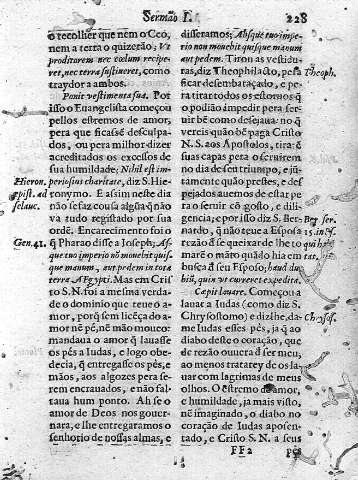 Sermão I.
228
o recolher que nem o Ceo,
nem a terra o quizerão; Ut
proditorem nec cœlum recipe-
ret, nec terra sustineret, como
traydor a ambos.
Ponit vestimenta sua. Por
isso o Euangelista começou
pellos estremos de amor,
pera que ficasse desculpa-
dos, ou pera milhor dizer
acreditados os excessos de
sua humildade, Nihil est im-
periosius charitate, diz S. Hie-
ronymo. E assim neste dia
não se faz cousa algũa q̃ não
va tudo registado por sua
ordẽ. Encarecimento foi o
q̃ Pharao disse a Joseph; Abs-
que tuo imperio nõ mouebit quis-
que manum, aut pedem in tota
terra Ægypti. Mas em Chris-
to S.N. foi a mesma verda-
de o dominio que teue o a-
mor, porq̃ sem licẽça do a-
mor nẽ pé, nẽ mão moueo:
mandaua o amor q̃ lauasse
os pès a Iudas, e logo obe-
decia, q̃ entregasse os pès, e
mãos, aos algozes pera se-
rem encrauados, e não fal-
taua hum ponto. Ah se o
amor de Deos nos gouer-
nara, e lhe entregaramos o
senhorio de nossas almas, e
Hieron.
epist. ad
Celanc.
Gen. 41.
disseramos; Absque tuo impe-
rio non mouebit quisque manum
aut pedem. Tirou as vestidu-
ras, diz Theophilacto, pera
ficar desembaraçado, e pe-
ra tirar todos os estoruos q̃
o podião impedir pera ser-
uir bẽ como desejaua: no q̃
vereis quão bẽ paga Cristo
N. S. aos Apostolos, tirã
suas capas pera o seruirem
no dia de seu triumpho, e jũ-
tamente quão prestes, e des-
pejados auemos de estar pe-
ra o seruir cõ gosto, e dili-
gencia; e por isso diz S. Ber-
nardo, q̃ não teue a Esposa
rezão de se queixar de lhe to-
marẽ o mãto quãdo hia em
busca d̃ seu Esposo; haud du-
biũ, quin ut curreret expedita.
Capit lauare. Começou a
lauar a Iudas (como diz S.
Chrysostomo) e dizlhe, da-
me Iudas esses pès, ja q̃ ao
diabo deste o coração, que
de rezão ouuera d̃ ser meu,
ao menos tratarey de os la-
uar com lagrimas de meus
olhos. O estremo de amor,
e humildade, ja mais visto,
nẽ imaginado, o diabo no
coração de Iudas aposen-
tado, e Cristo S. N. a seus
Theoph.
Chrysos.
FF2
pès